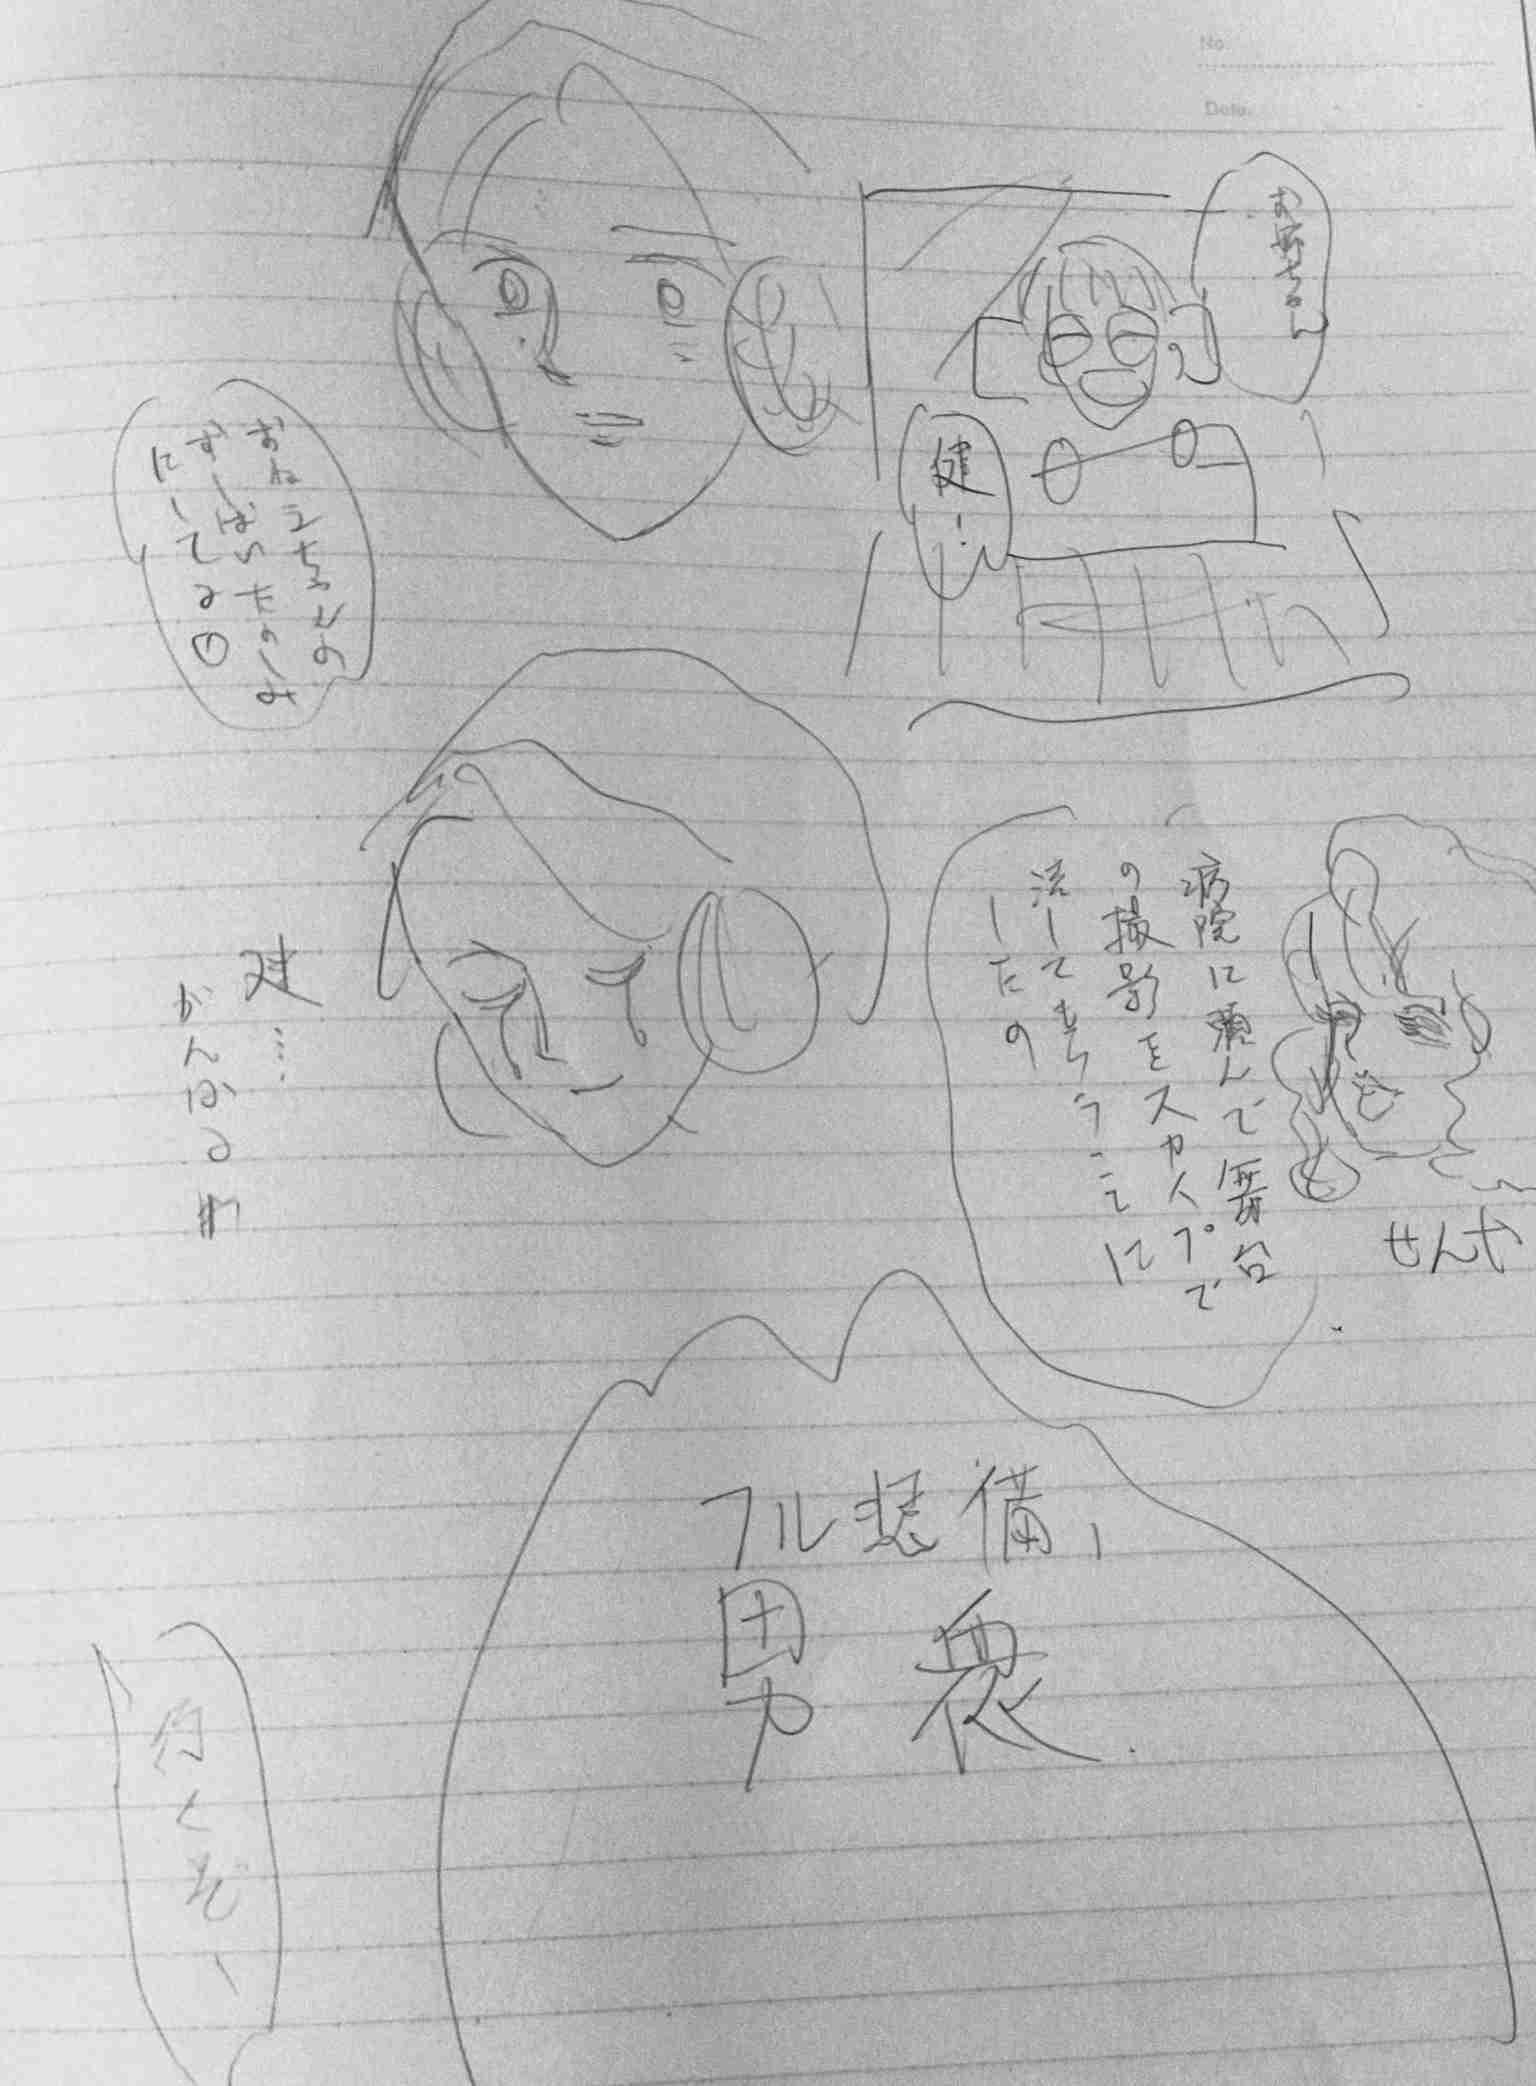 No.
Date.
お姉ちゃん
健…!
おねえちゃんの
おしばいたのしみ
にしてる①
病院に頼んで舞台
の撮影をスカイプで
流してもらうことに
したの
せんせ
健…
がんばるわ
フル装備、
男衆.
行くぞー